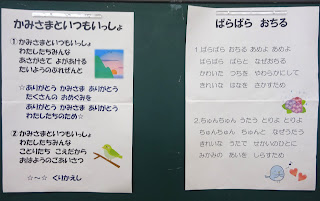 かみさまといつもいっしょ
①かみさまといつもいっしょ
わたしたちみんな
あさがきて よがあける
たいようのぷれぜんと
☆ありがとう かみさま ありがとう
たくさんの おめぐみを
ありがとう かみさま ありがとう
わたしたちのため☆
2.かみさまといつもいっしょ
わたしたちみんな
ことりたち こえだから
おはようのごあいさつ
☆～☆ くりかえし
ぱらぱら おちる
1.ぱらぱら おちる あめよ あめよ
ぱらぱら ぱらと なぜおちる
かわいた つちを やわらかにして
きれいな はなを さかすため
2.ちゅんちゅん うたう とりよ とりよ
ちゅんちゅん ちゅんと なぜうたう
きれいな うたで せかいのひとに
みかみの あいを しらすため